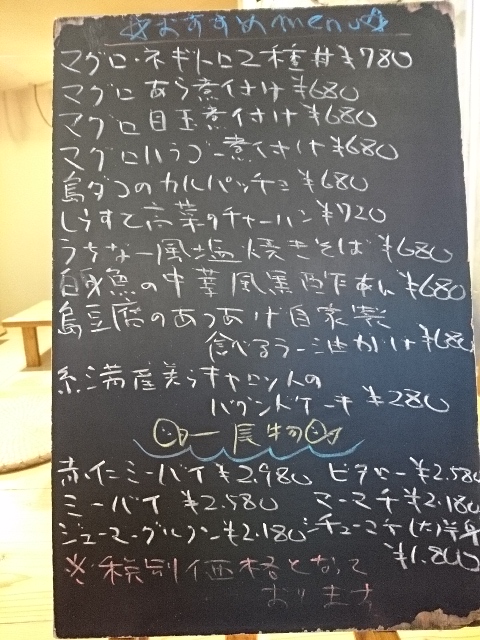 ☆おすすめmenu☆
マグロ・ネギトロ2種丼 ¥780
マグロ あら煮付け ¥680
マグロ 目玉煮付け ¥680
マグロハラゴー煮付け ¥680
島ダコのカルパッチョ ¥680
しらすと高菜のチャーハン ¥720
うちなー風塩焼きそば ¥680
白身魚の中華風黒酢あん ¥680
島豆腐のあつあげ自家製
食べるラー油かけ ¥680
糸満産美らキャロットの
パウンドケーキ ¥280
一長物
赤仁ミーバイ ¥2.980 ビタロー ¥2.580
ミーバイ ¥2.580 マーマチ ¥2.180
ジューマーグルクン ¥2.180 シチューマチ(大)半身
¥1.800
※税別価格となって
おります